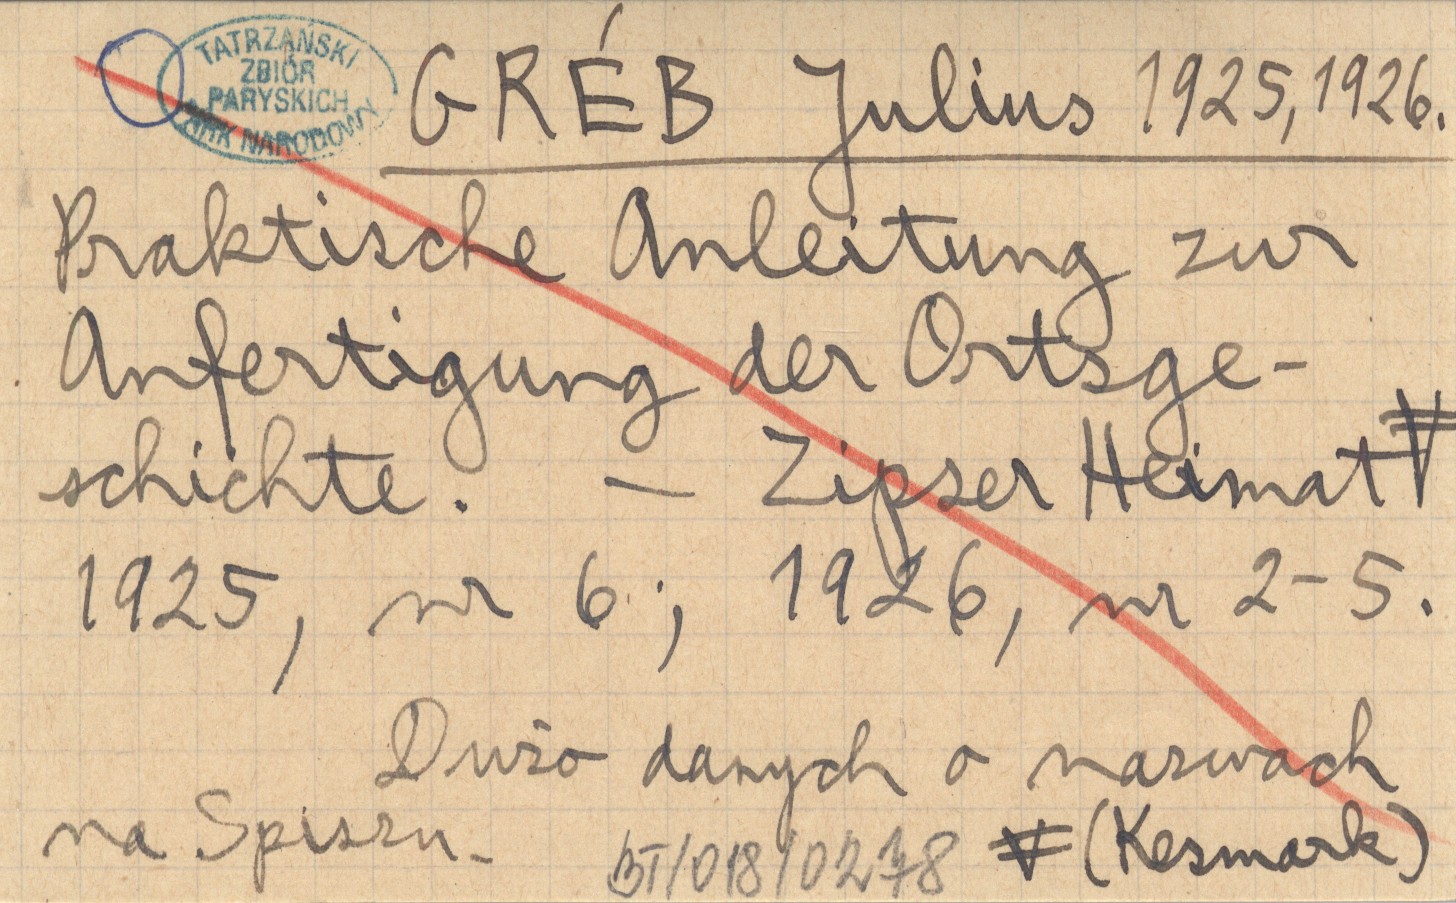 TATRZAŃSKI
ZBIÓR
PARYSKICH
PARK NARODOWY
GRÉB Julius 1925, 1926.
Praktische Anleitung zur
Anfertigung der Ortsge-
schichte. — Zipser Heimat
1925, nr 6; 1926, nr 2-5.
Dużo danych o nazwach
na Spiszu.
BT/018/0278 (Kesmark)